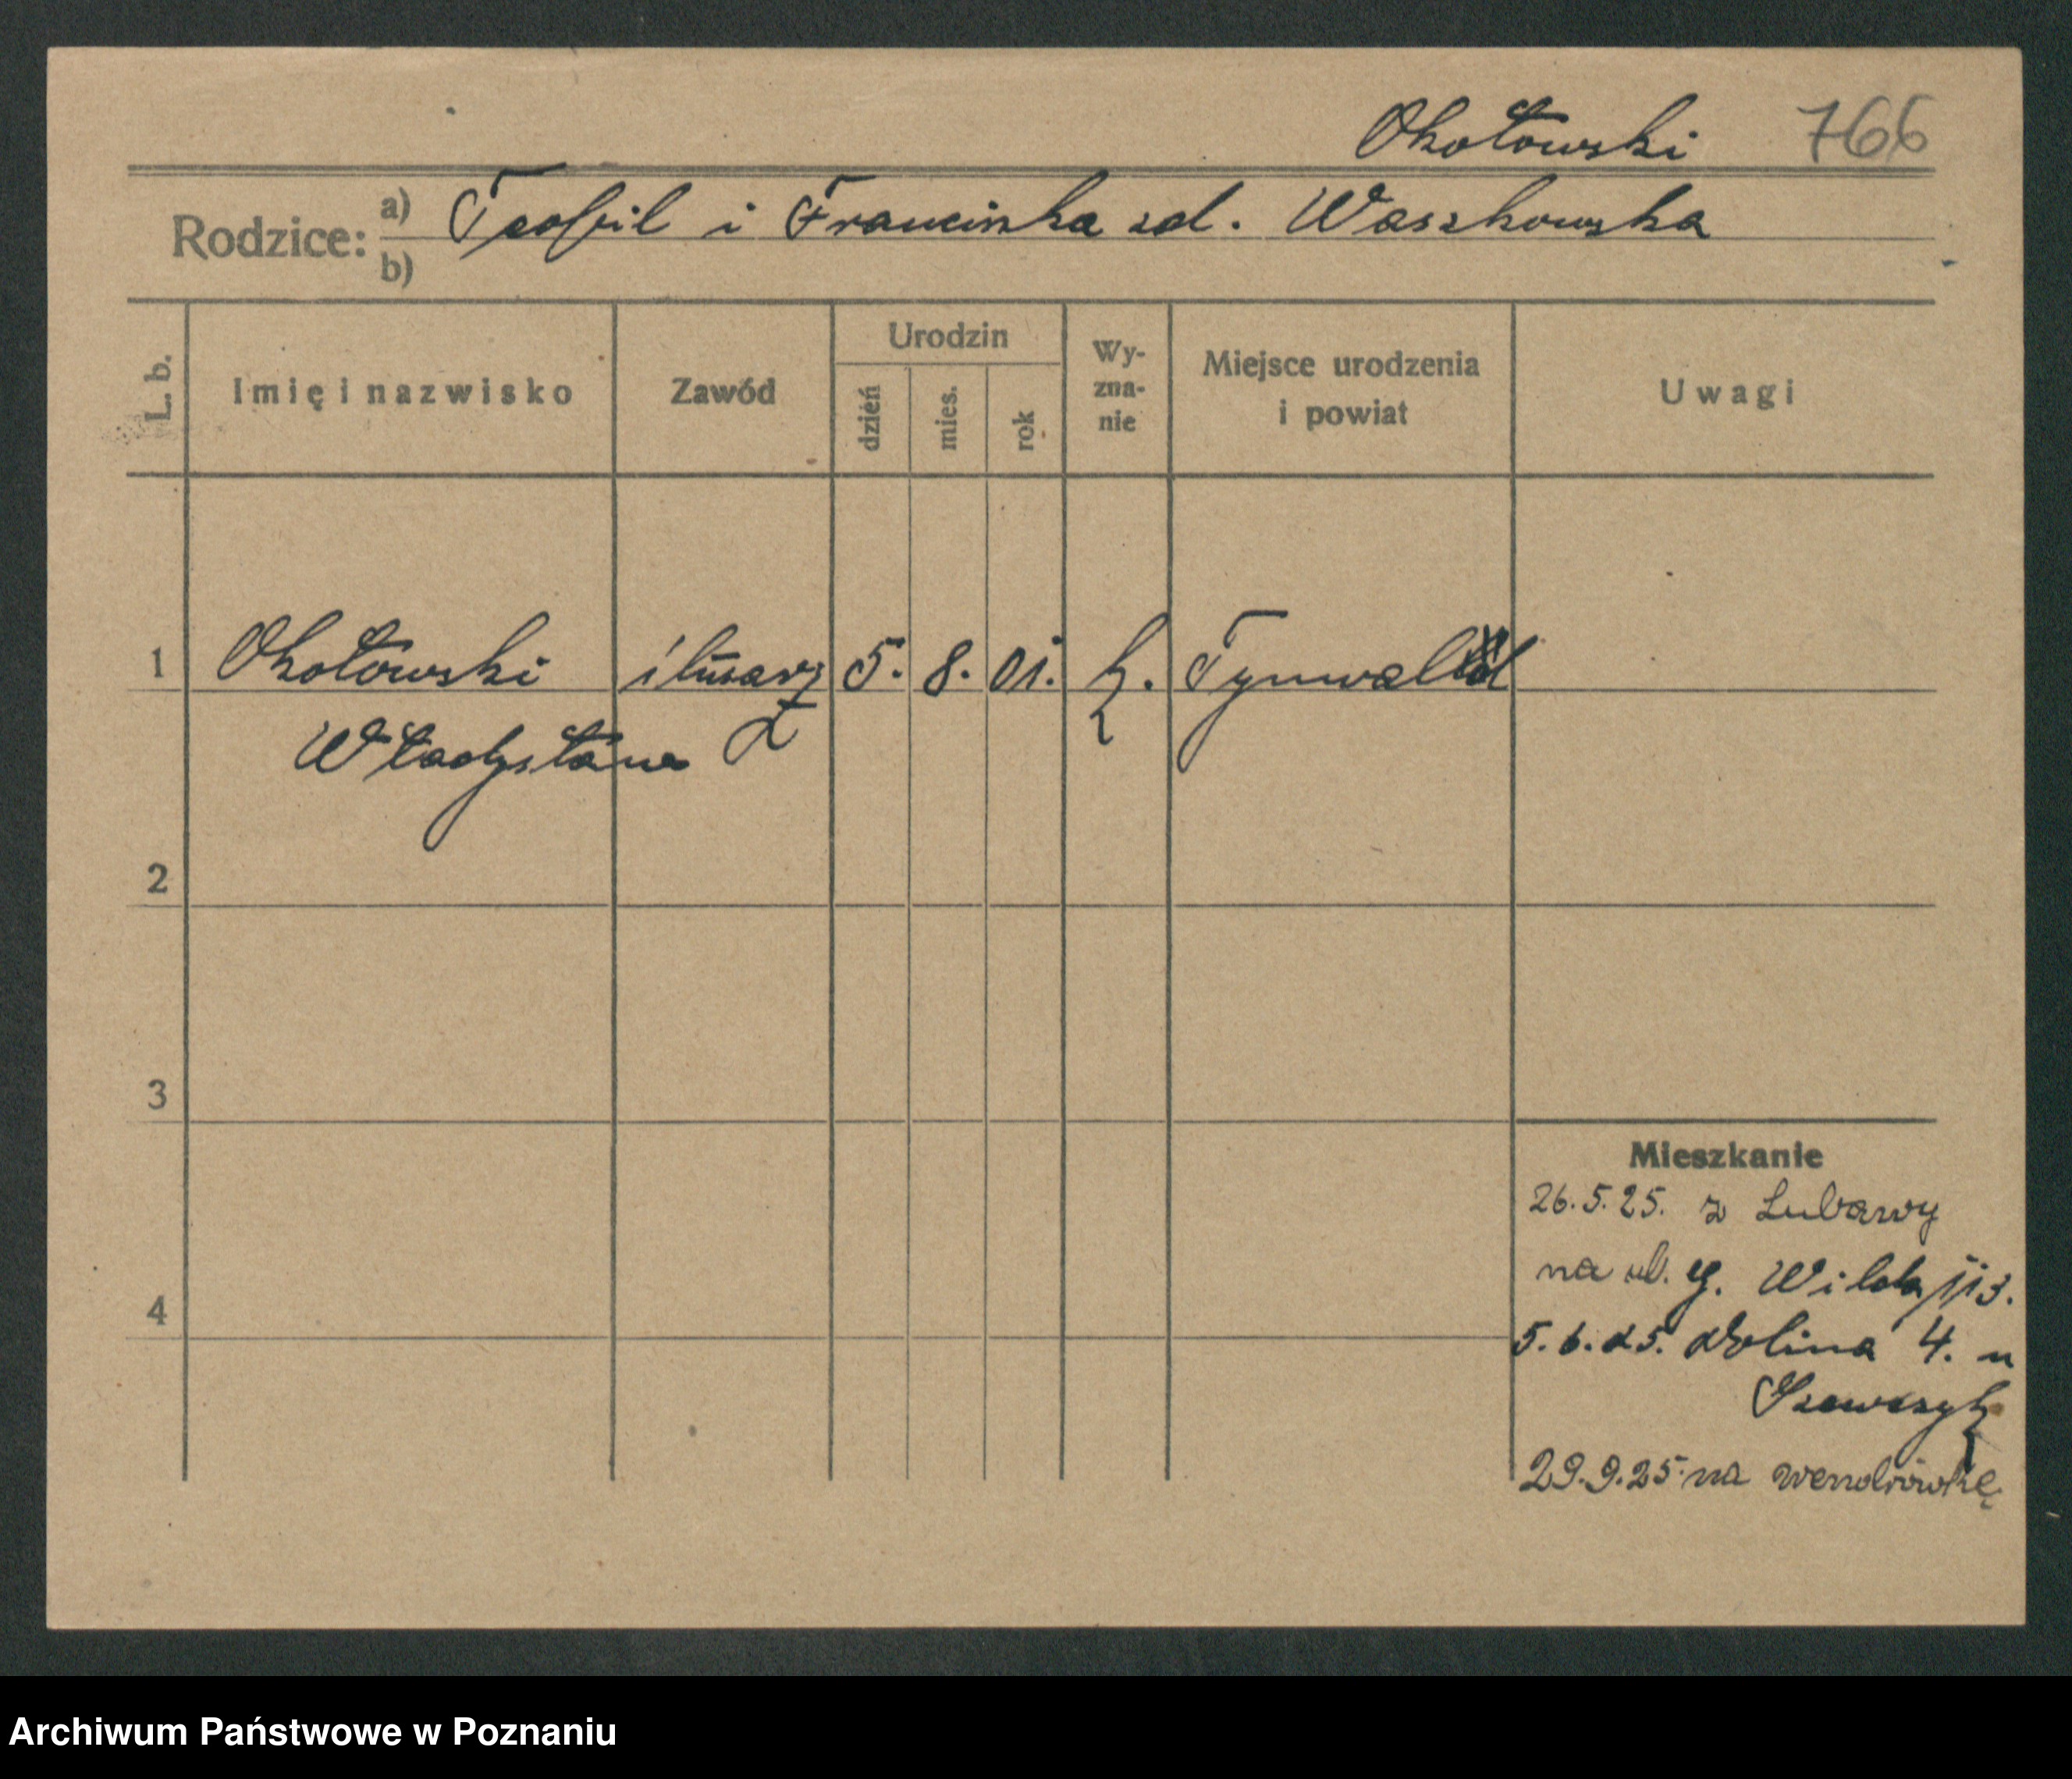 Okołowski 766
Rodzice: a) Teofil i Franciszka zd. Waszkowska
b)
L. b. Imię i nazwisko Zawód Urodzin dzień mies. rok Wyznanie Miejsce urodzenia i powiat Uwagi
1 Okołowski ślusarz 5. 8. 01. k. Tynwald
Władysław
2
3
Mieszkanie
26.5.25. z Lubawy
na ul. g. Wilda 113.
4
5.6.25. Dolina 4. u
Szewczyk
29.9.25 na wendrówkę
Archiwum Państwowe w Poznaniu